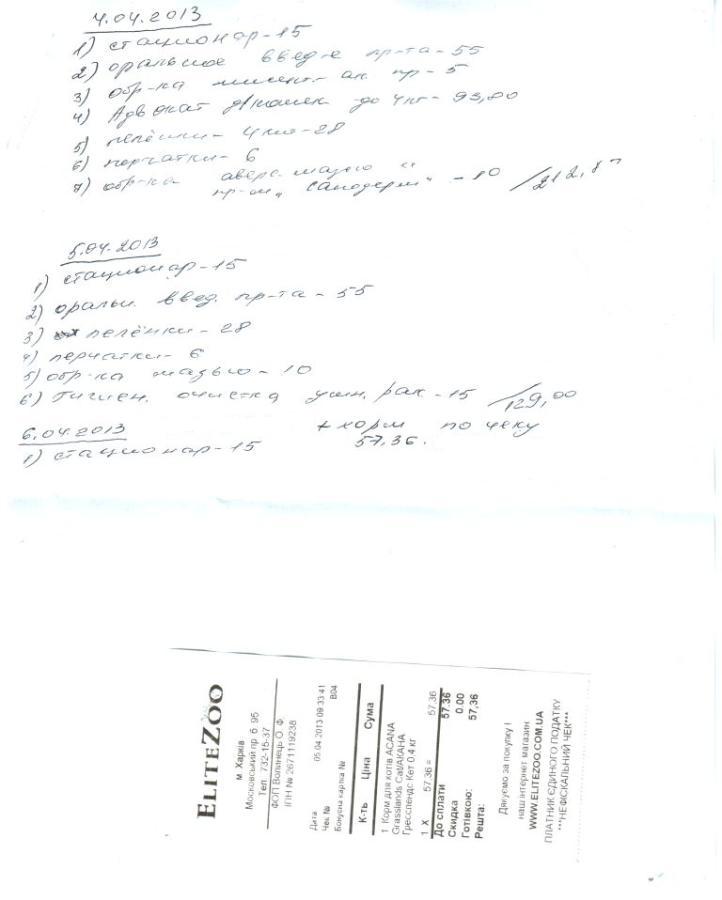 4.04.2013
1) стационар - 15
2) оральное введ-е пр-та - 55
3) обр-ка ак пр - 5
4) Адвокат д/кошек до 4кг - 93,80
5) пелёнки - 4шт - 28
6) перчатки - 6
7) обр-ка аверс. мазью и
пр-ом "Санодерм" - 10 /212,8
5.04.2013
1) стационар - 15
2) оральн. введ. пр-та - 55
3) пелёнки - 28
4) перчатки - 6
5) обр-ка мазью - 10
6) Гигиен. очистка ушн. рак. - 15 /129,00
+ корм по чеку
57,36.
6.04.2013
1) стационар - 15
ELITEZOO
м.Харків
Московський пр. б. 95
Тел. 732-15-37
ФОП Волинець О. Ф.
ІПН № 2671119238
Дата 05.04.2013 09:33:41
Чек № B04
Бонусна картка №
К-ть Ціна Сума
1 Корм для котів ACANA
Grasslands Cat/АКАНА
Гресслендс Кет 0,4 кг
1 X 57,36 = 57,36
До сплати 57,36
Скидка 0.00
Готівкою: 57,36
Решта:
Дякуємо за покупку !
наш інтернет магазин
WWW.ELITEZOO.COM.UA
ПЛАТНИК ЄДИНОГО ПОДАТКУ
***НЕФІСКАЛЬНИЙ ЧЕК***